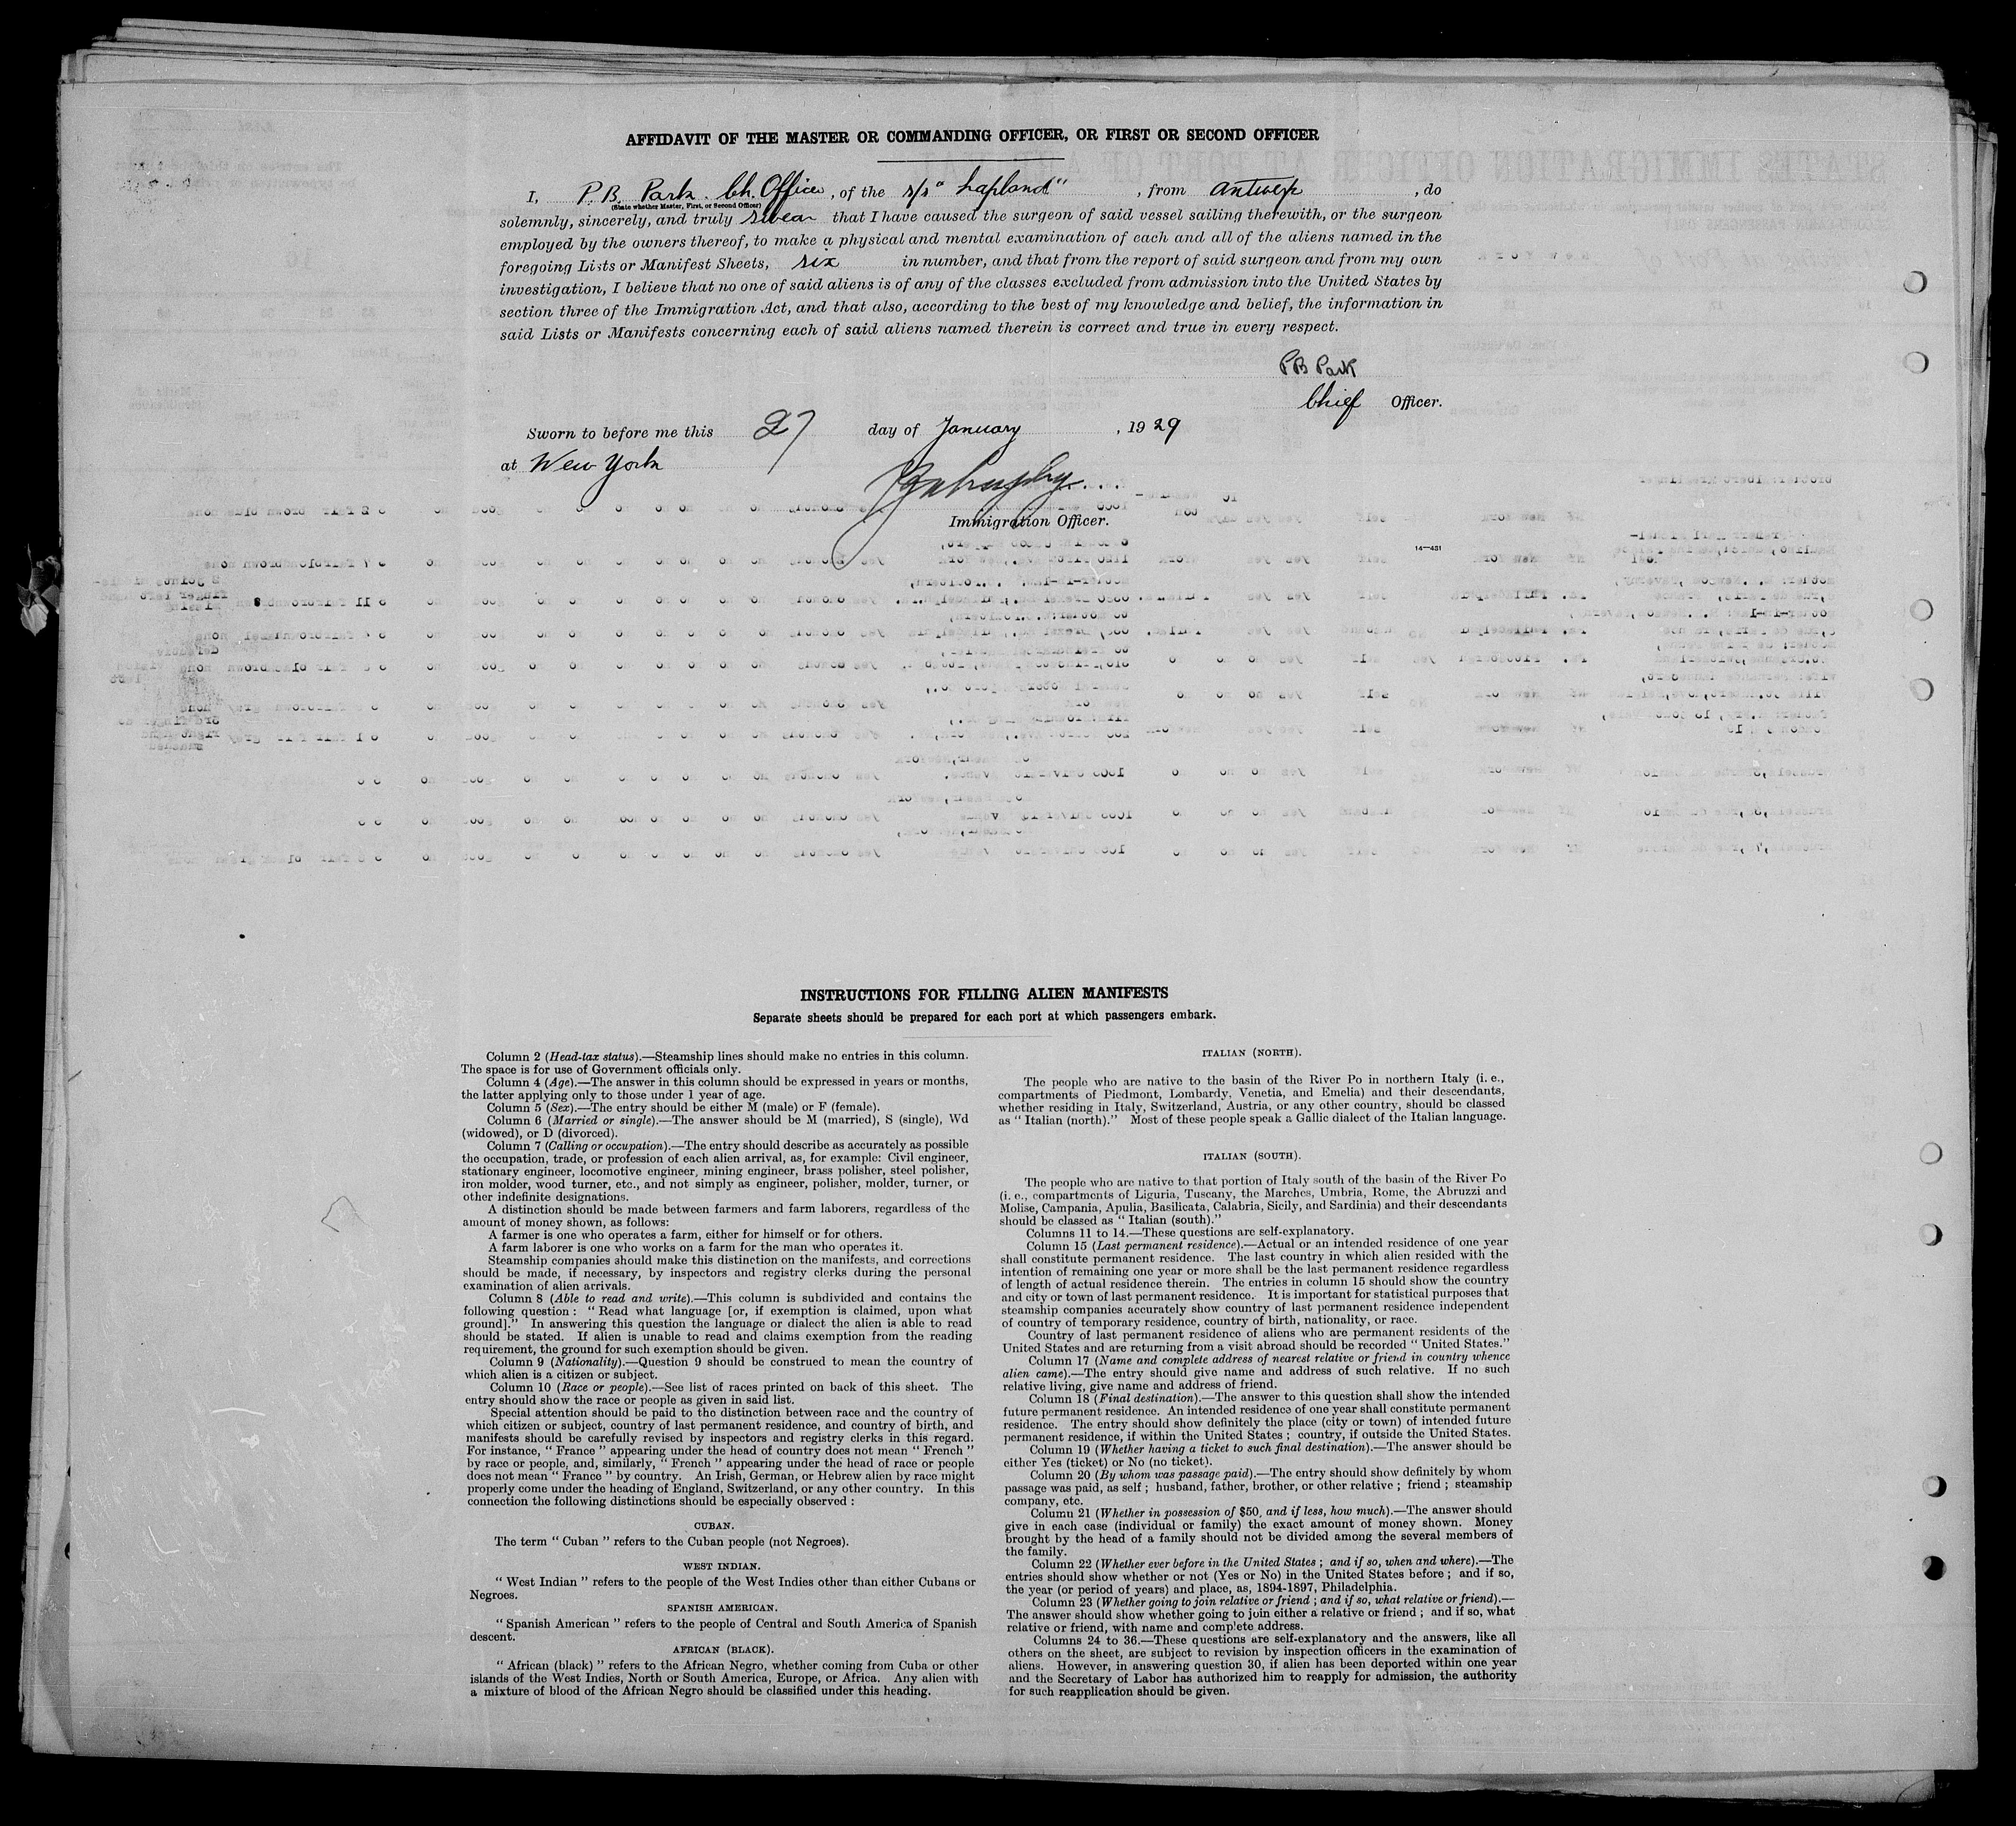 AFFIDAVIT OF THE MASTER OR COMMANDING OFFICER, OR FIRST OR SECOND OFFICER
I, P. B. Park. Ch. Officer, of the s/s "Lapland" , from Antwerp , do
(State whether Master, First, or Second Officer)
solemnly, sincerely, and truly swear that I have caused the surgeon of said vessel sailing therewith, or the surgeon
employed by the owners thereof, to make a physical and mental examination of each and all of the aliens named in the
foregoing Lists or Manifest Sheets, six in number, and that from the report of said surgeon and from my own
investigation, I believe that no one of said aliens is of any of the classes excluded from admission into the United States by
section three of the Immigration Act, and that also, according to the best of my knowledge and belief, the information in
said Lists or Manifests concerning each of said aliens named therein is correct and true in every respect.
PB Park
Chief Officer.
Sworn to before me this 27 day of January , 1929
at New York
Immigration Officer.
14—431
INSTRUCTIONS FOR FILLING ALIEN MANIFESTS
Separate sheets should be prepared for each port at which passengers embark.
Column 2 (Head-tax status).—Steamship lines should make no entries in this column.
The space is for use of Government officials only.
Column 4 (Age).—The answer in this column should be expressed in years or months,
the latter applying only to those under 1 year of age.
Column 5 (Sex).—The entry should be either M (male) or F (female).
Column 6 (Married or single).—The answer should be M (married), S (single), Wd
(widowed), or D (divorced).
Column 7 (Calling or occupation).—The entry should describe as accurately as possible
the occupation, trade, or profession of each alien arrival, as, for example: Civil engineer,
stationary engineer, locomotive engineer, mining engineer, brass polisher, steel polisher,
iron molder, wood turner, etc., and not simply as engineer, polisher, molder, turner, or
other indefinite designations.
A distinction should be made between farmers and farm laborers, regardless of the
amount of money shown, as follows:
A farmer is one who operates a farm, either for himself or for others.
A farm laborer is one who works on a farm for the man who operates it.
Steamship companies should make this distinction on the manifests, and corrections
should be made, if necessary, by inspectors and registry clerks during the personal
examination of alien arrivals.
Column 8 (Able to read and write).—This column is subdivided and contains the
following question : " Read what language [or, if exemption is claimed, upon what
ground]." In answering this question the language or dialect the alien is able to read
should be stated. If alien is unable to read and claims exemption from the reading
requirement, the ground for such exemption should be given.
Column 9 (Nationality).—Question 9 should be construed to mean the country of
which alien is a citizen or subject.
Column 10 (Race or people).—See list of races printed on back of this sheet. The
entry should show the race or people as given in said list.
Special attention should be paid to the distinction between race and the country of
which citizen or subject, country of last permanent residence, and country of birth, and
manifests should be carefully revised by inspectors and registry clerks in this regard.
For instance, " France " appearing under the head of country does not mean " French "
by race or people, and, similarly, " French " appearing under the head of race or people
does not mean " France " by country. An Irish, German, or Hebrew alien by race might
properly come under the heading of England, Switzerland, or any other country. In this
connection the following distinctions should be especially observed :
CUBAN.
The term " Cuban " refers to the Cuban people (not Negroes).
WEST INDIAN.
" West Indian " refers to the people of the West Indies other than either Cubans or
Negroes.
SPANISH AMERICAN.
" Spanish American " refers to the people of Central and South America of Spanish
descent.
AFRICAN (BLACK).
" African (black) " refers to the African Negro, whether coming from Cuba or other
islands of the West Indies, North or South America, Europe, or Africa. Any alien with
a mixture of blood of the African Negro should be classified under this heading.
ITALIAN (NORTH).
The people who are native to the basin of the River Po in northern Italy (i. e.,
compartments of Piedmont, Lombardy, Venetia, and Emelia) and their descendants,
whether residing in Italy, Switzerland, Austria, or any other country, should be classed
as " Italian (north)." Most of these people speak a Gallic dialect of the Italian language.
ITALIAN (SOUTH).
The people who are native to that portion of Italy south of the basin of the River Po
(i. e., compartments of Liguria, Tuscany, the Marches, Umbria, Rome, the Abruzzi and
Molise, Campania, Apulia, Basilicata, Calabria, Sicily, and Sardinia) and their descendants
should be classed as " Italian (south)."
Columns 11 to 14.—These questions are self-explanatory.
Column 15 (Last permanent residence).—Actual or an intended residence of one year
shall constitute permanent residence. The last country in which alien resided with the
intention of remaining one year or more shall be the last permanent residence regardless
of length of actual residence therein. The entries in column 15 should show the country
and city or town of last permanent residence. It is important for statistical purposes that
steamship companies accurately show country of last permanent residence independent
of country of temporary residence, country of birth, nationality, or race.
Country of last permanent residence of aliens who are permanent residents of the
United States and are returning from a visit abroad should be recorded " United States."
Column 17 (Name and complete address of nearest relative or friend in country whence
alien came).—The entry should give name and address of such relative. If no such
relative living, give name and address of friend.
Column 18 (Final destination).—The answer to this question shall show the intended
future permanent residence. An intended residence of one year shall constitute permanent
residence. The entry should show definitely the place (city or town) of intended future
permanent residence, if within the United States ; country, if outside the United States.
Column 19 (Whether having a ticket to such final destination).—The answer should be
either Yes (ticket) or No (no ticket).
Column 20 (By whom was passage paid).—The entry should show definitely by whom
passage was paid, as self ; husband, father, brother, or other relative ; friend ; steamship
company, etc.
Column 21 (Whether in possession of $50, and if less, how much).—The answer should
give in each case (individual or family) the exact amount of money shown. Money
brought by the head of a family should not be divided among the several members of
the family.
Column 22 (Whether ever before in the United States ; and if so, when and where).—The
entries should show whether or not (Yes or No) in the United States before ; and if so,
the year (or period of years) and place, as, 1894-1897, Philadelphia.
Column 23 (Whether going to join relative or friend ; and if so, what relative or friend).—
The answer should show whether going to join either a relative or friend ; and if so, what
relative or friend, with name and complete address.
Columns 24 to 36.—These questions are self-explanatory and the answers, like all
others on the sheet, are subject to revision by inspection officers in the examination of
aliens. However, in answering question 30, if alien has been deported within one year
and the Secretary of Labor has authorized him to reapply for admission, the authority
for such reapplication should be given.